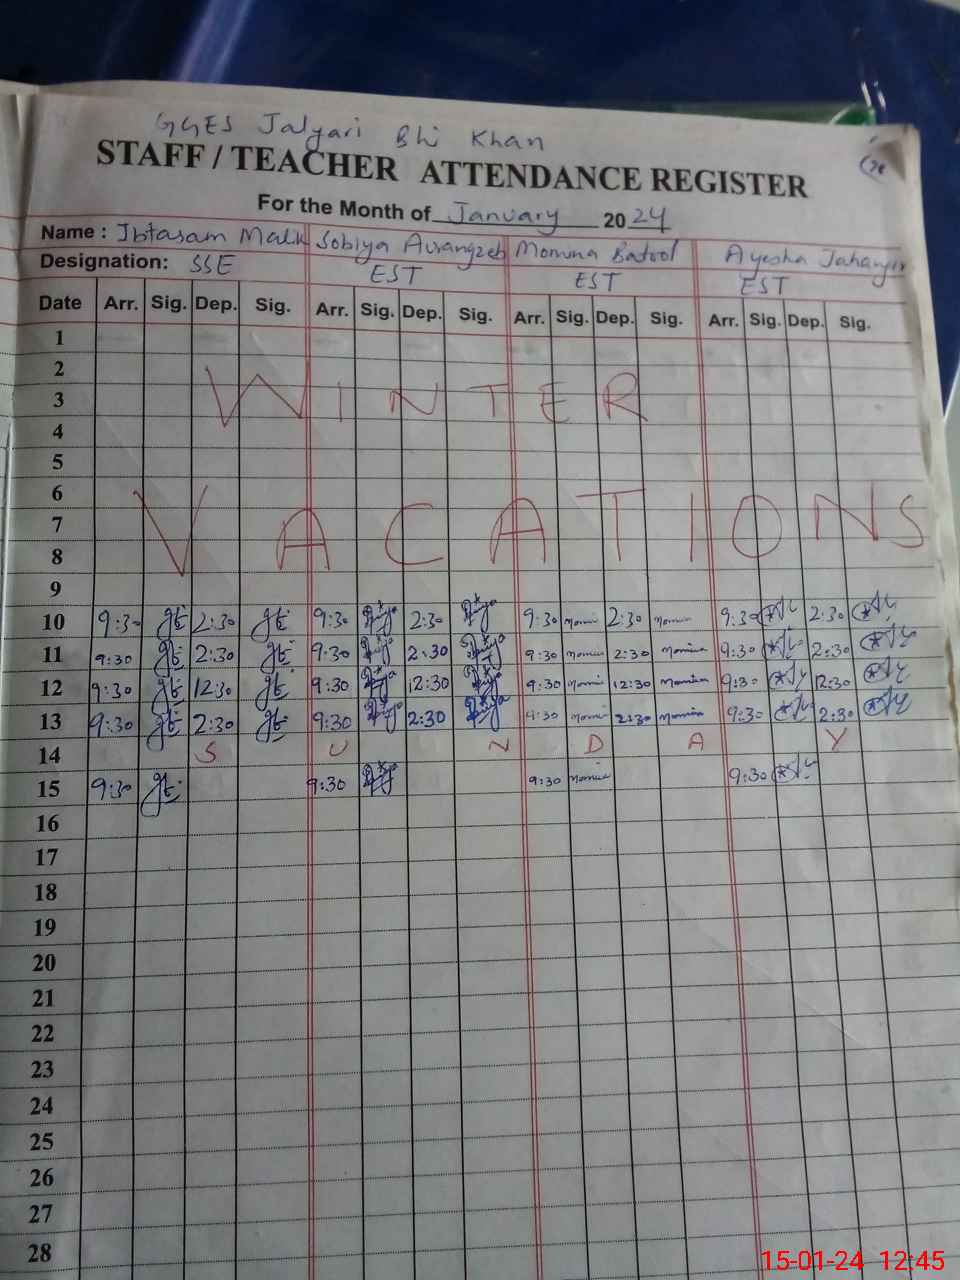 GGES Jalyari Bhi Khan
STAFF / TEACHER ATTENDANCE REGISTER
For the Month of January 2024
Name : Ibtasam Malik Sobiya Aurangzeb Momina Batool Ayesha Jahangir
Designation: SSE EST EST EST
Date Arr. Sig. Dep. Sig. Arr. Sig. Dep. Sig. Arr. Sig. Dep. Sig. Arr. Sig. Dep. Sig.
1
2
3 WINTER
4
5
6
7 VACATIONS
8
9
10 9:30 2:30 9:30 2:30 9:30 2:30 9:30 2:30
11 9:30 2:30 9:30 2:30 9:30 2:30 9:30 2:30
12 9:30 12:30 9:30 12:30 9:30 12:30 9:30 12:30
13 9:30 2:30 9:30 2:30 9:30 2:30 9:30 2:30
14 S U N D A Y
15 9:30 9:30 9:30 9:30
16
17
18
19
20
21
22
23
24
25
26
27
28
15-01-24 12:45